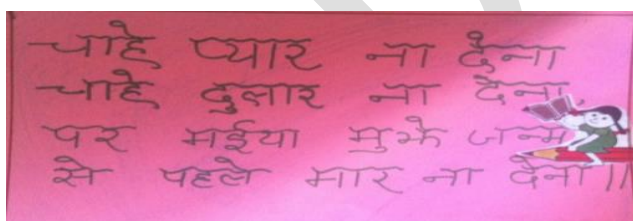 चाहे प्यार ना देना
चाहे दुलार ना देना
पर मईया मुझे जन्म
से पहले मार ना देना॥